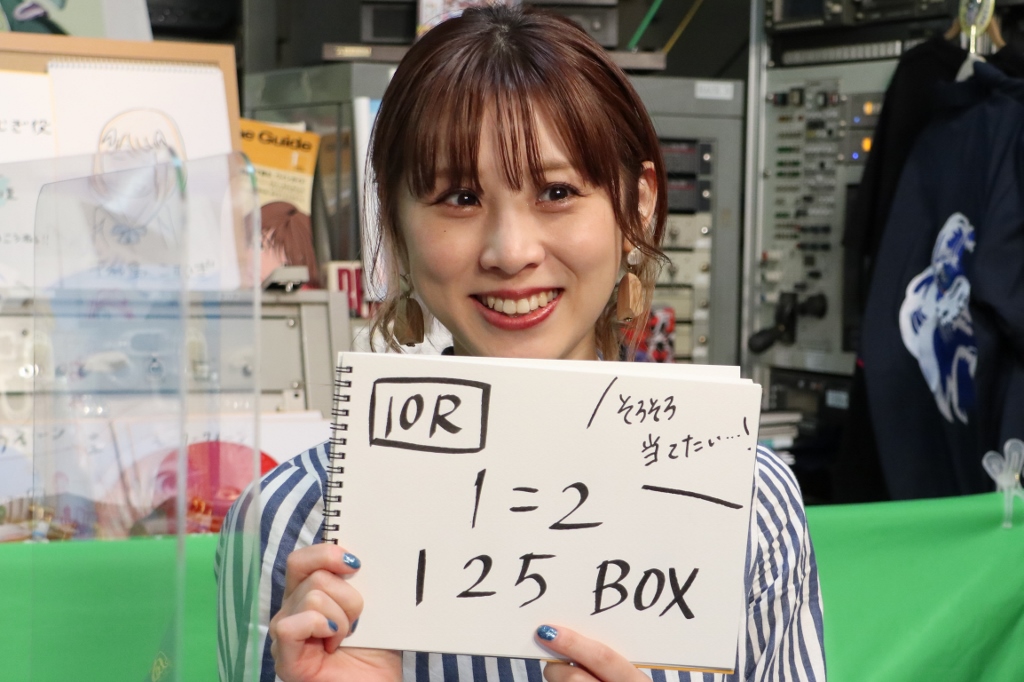 10R
そろそろ
当てたい…!
1=2
125 BOX
Guide